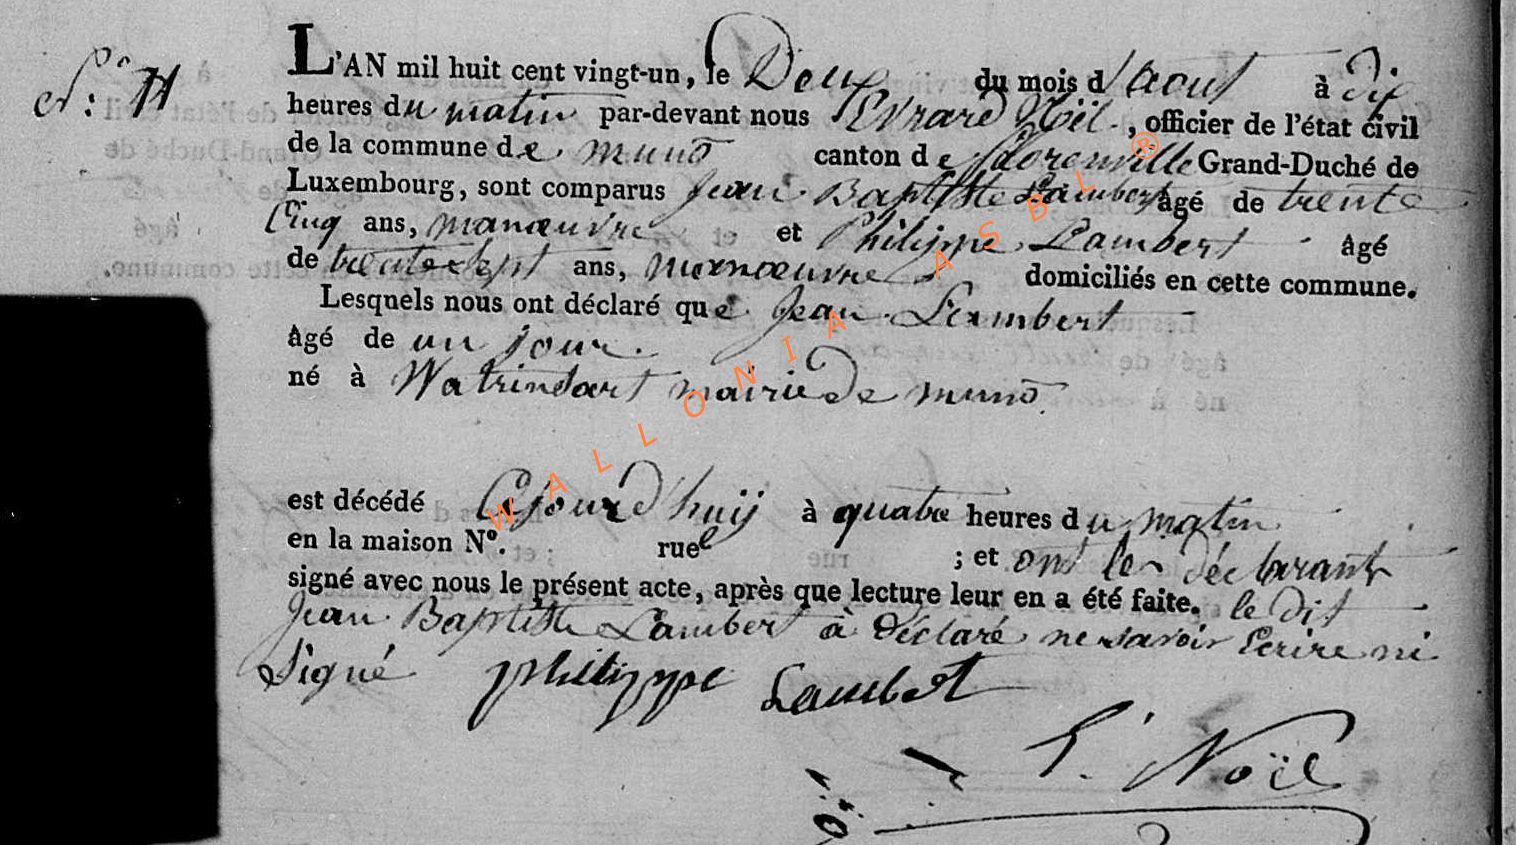 N°: 11
L'AN mil huit cent vingt-un, le Deux du mois d'aout à dix
heures du matin par-devant nous Evrard Noël, officier de l'état civil
de la commune de muno canton de florenville Grand-Duché de
Luxembourg, sont comparus Jean Baptiste Lambert âgé de trente
Cinq ans, manœuvre et Philippe Lambert âgé
de trente sept ans, manœuvre domiciliés en cette commune.
Lesquels nous ont déclaré que Jean Lambert
âgé de un jour.
né à Watrinsart mairie de muno.
est décédé Cejourd'huij à quatre heures du matin
en la maison N°. rue ; et ont les déclarants
signé avec nous le présent acte, après que lecture leur en a été faite. le dit
Jean Baptiste Lambert à déclaré ne savoir Ecrire ni
Signé philippe Lambert
E. Noël
WALLONIA ASBL ®